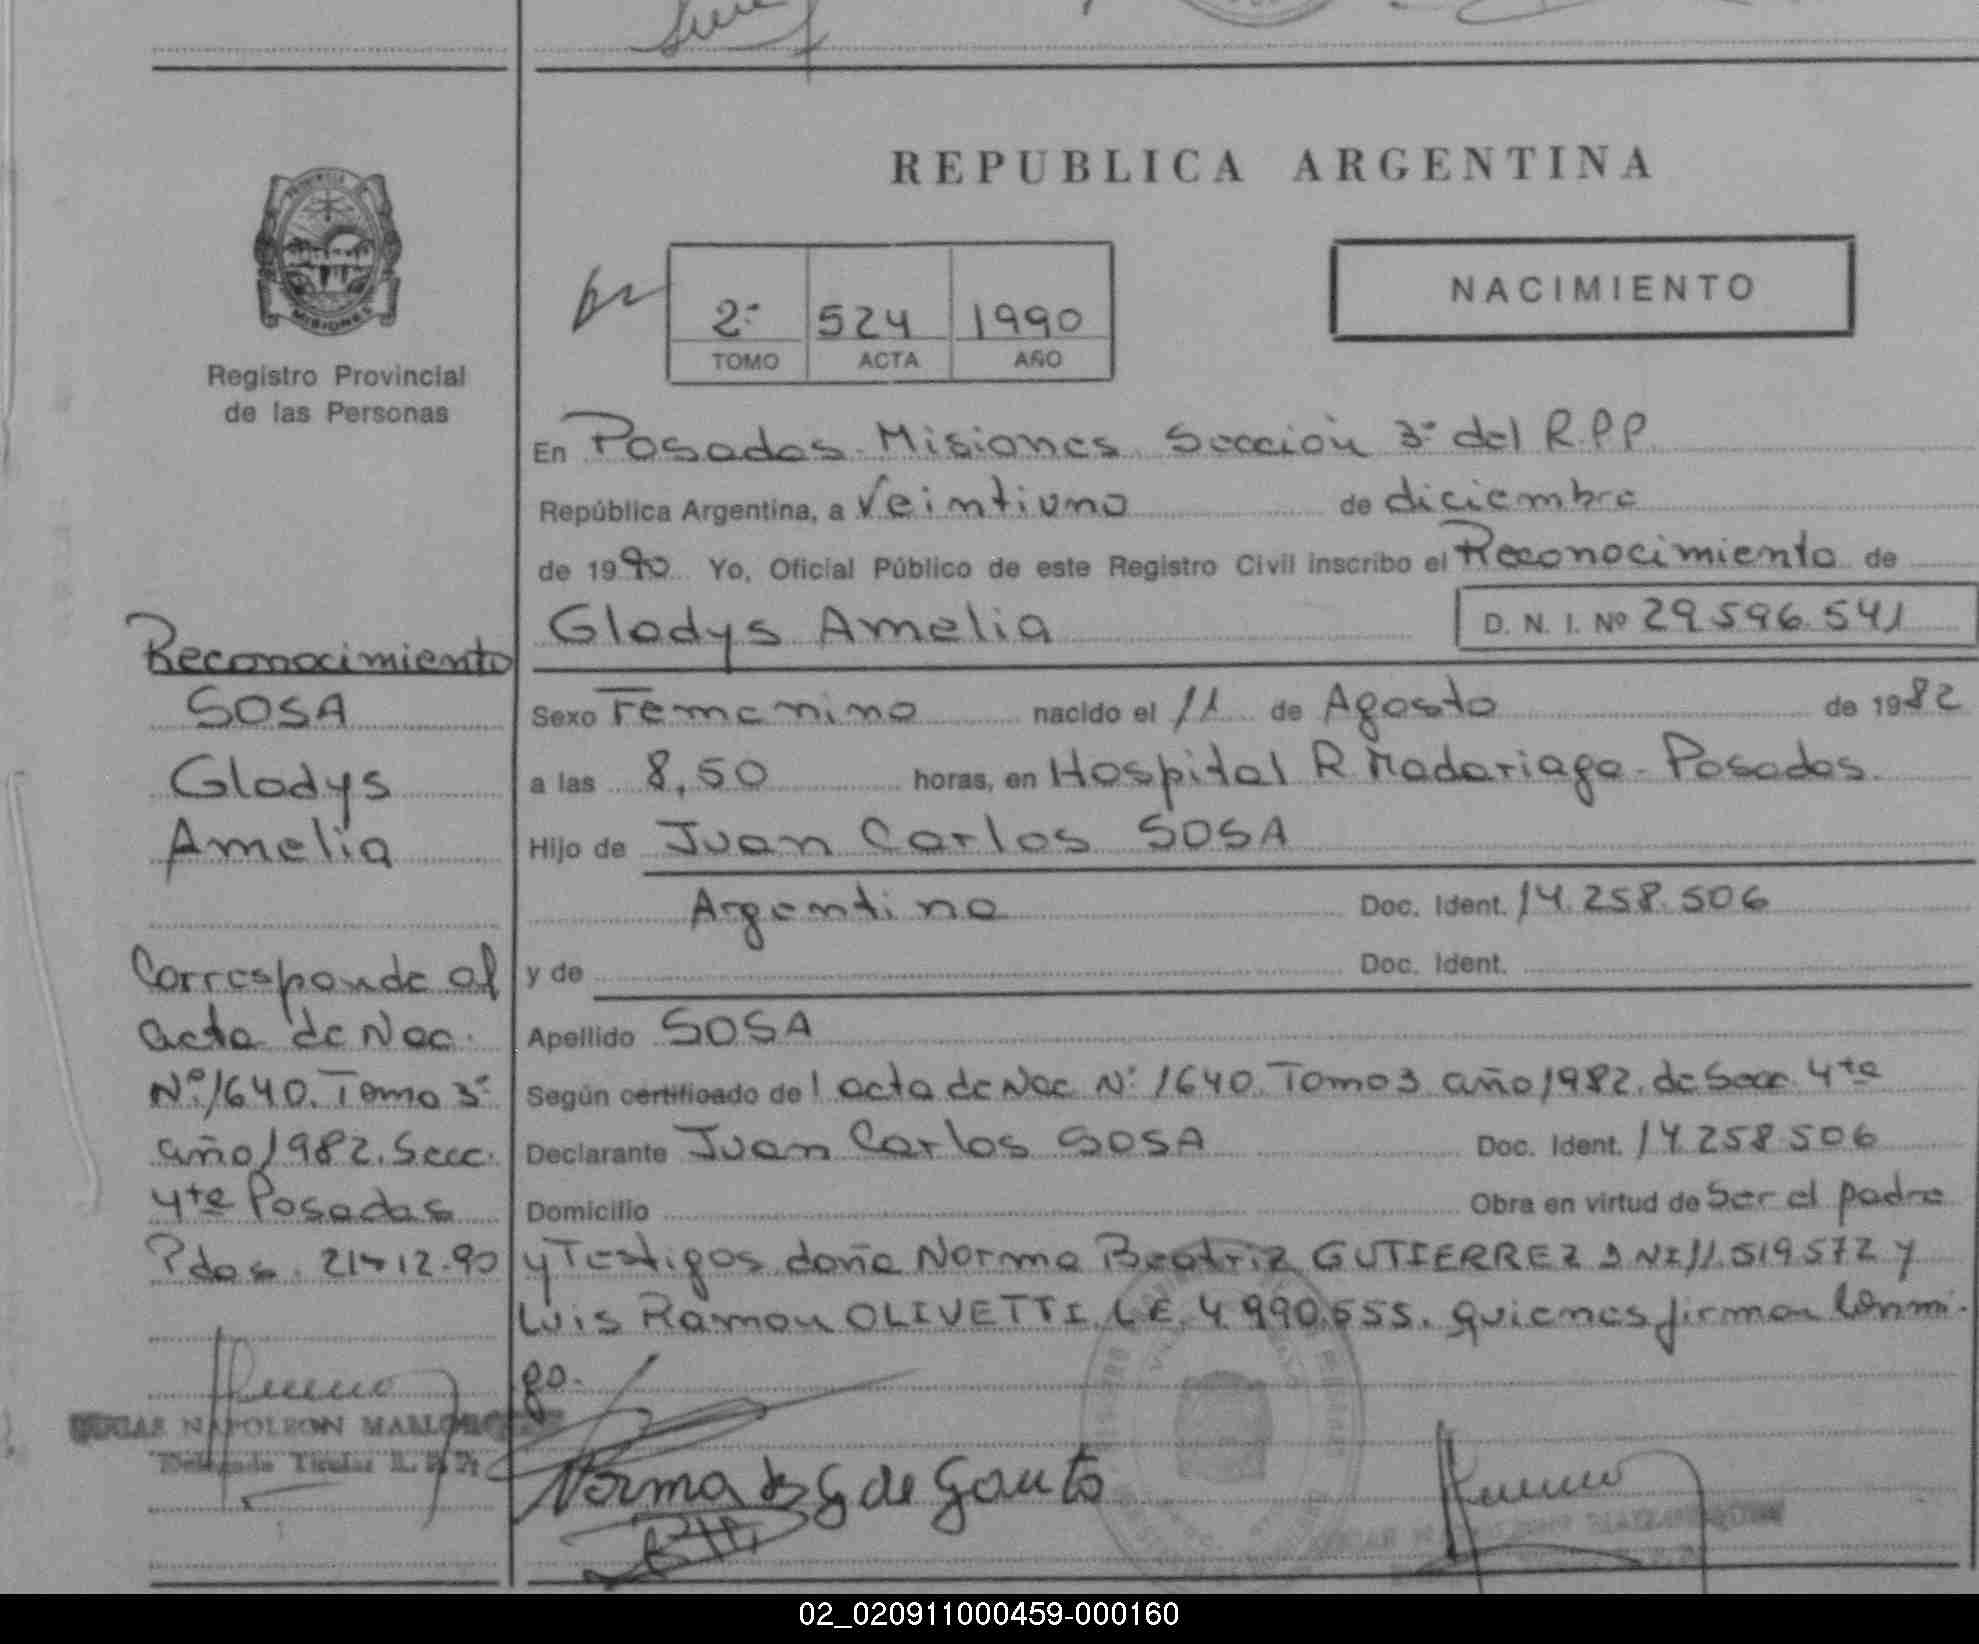 REPUBLICA ARGENTINA
MISIONES
Registro Provincial
de las Personas
NACIMIENTO
2º 524 1990
TOMO ACTA AÑO
En Posadas Misiones Sección 3º del R.P.P.
República Argentina, a Veintiuno de diciembre
de 1990 Yo, Oficial Público de este Registro Civil inscribo el Reconocimiento de
Gladys Amelia D. N. I. Nº 29.596.541
Sexo Femenino nacido el 11 de Agosto de 1982
a las 8,50 horas, en Hospital R Madariaga - Posadas.
Hijo de Juan Carlos SOSA
Argentino Doc. Ident. 14.258.506
y de Doc. Ident.
Apellido SOSA
Según certificado del acta de Nac Nº 1640. Tomo 3 año 1982. de Secc 4ta
Declarante Juan Carlos SOSA Doc. Ident. 14.258.506
Domicilio Obra en virtud de Ser el padre
y Testigos doña Norma Beatriz GUTIERREZ DNI 11.519572 y
Luis Ramon OLIVETTI. L.E. 4.990.655. quienes firman Conmi-
go.
Norma B G de Gauto
Reconocimiento
SOSA
Gladys
Amelia
Corresponde al
acta de Nac.
Nº 1640. Tomo 3º
año 1982. Secc.
4ta Posadas
Pdas. 21-12-90
NAPOLEON
Delegado Titular R. P. P.
02_020911000459-000160